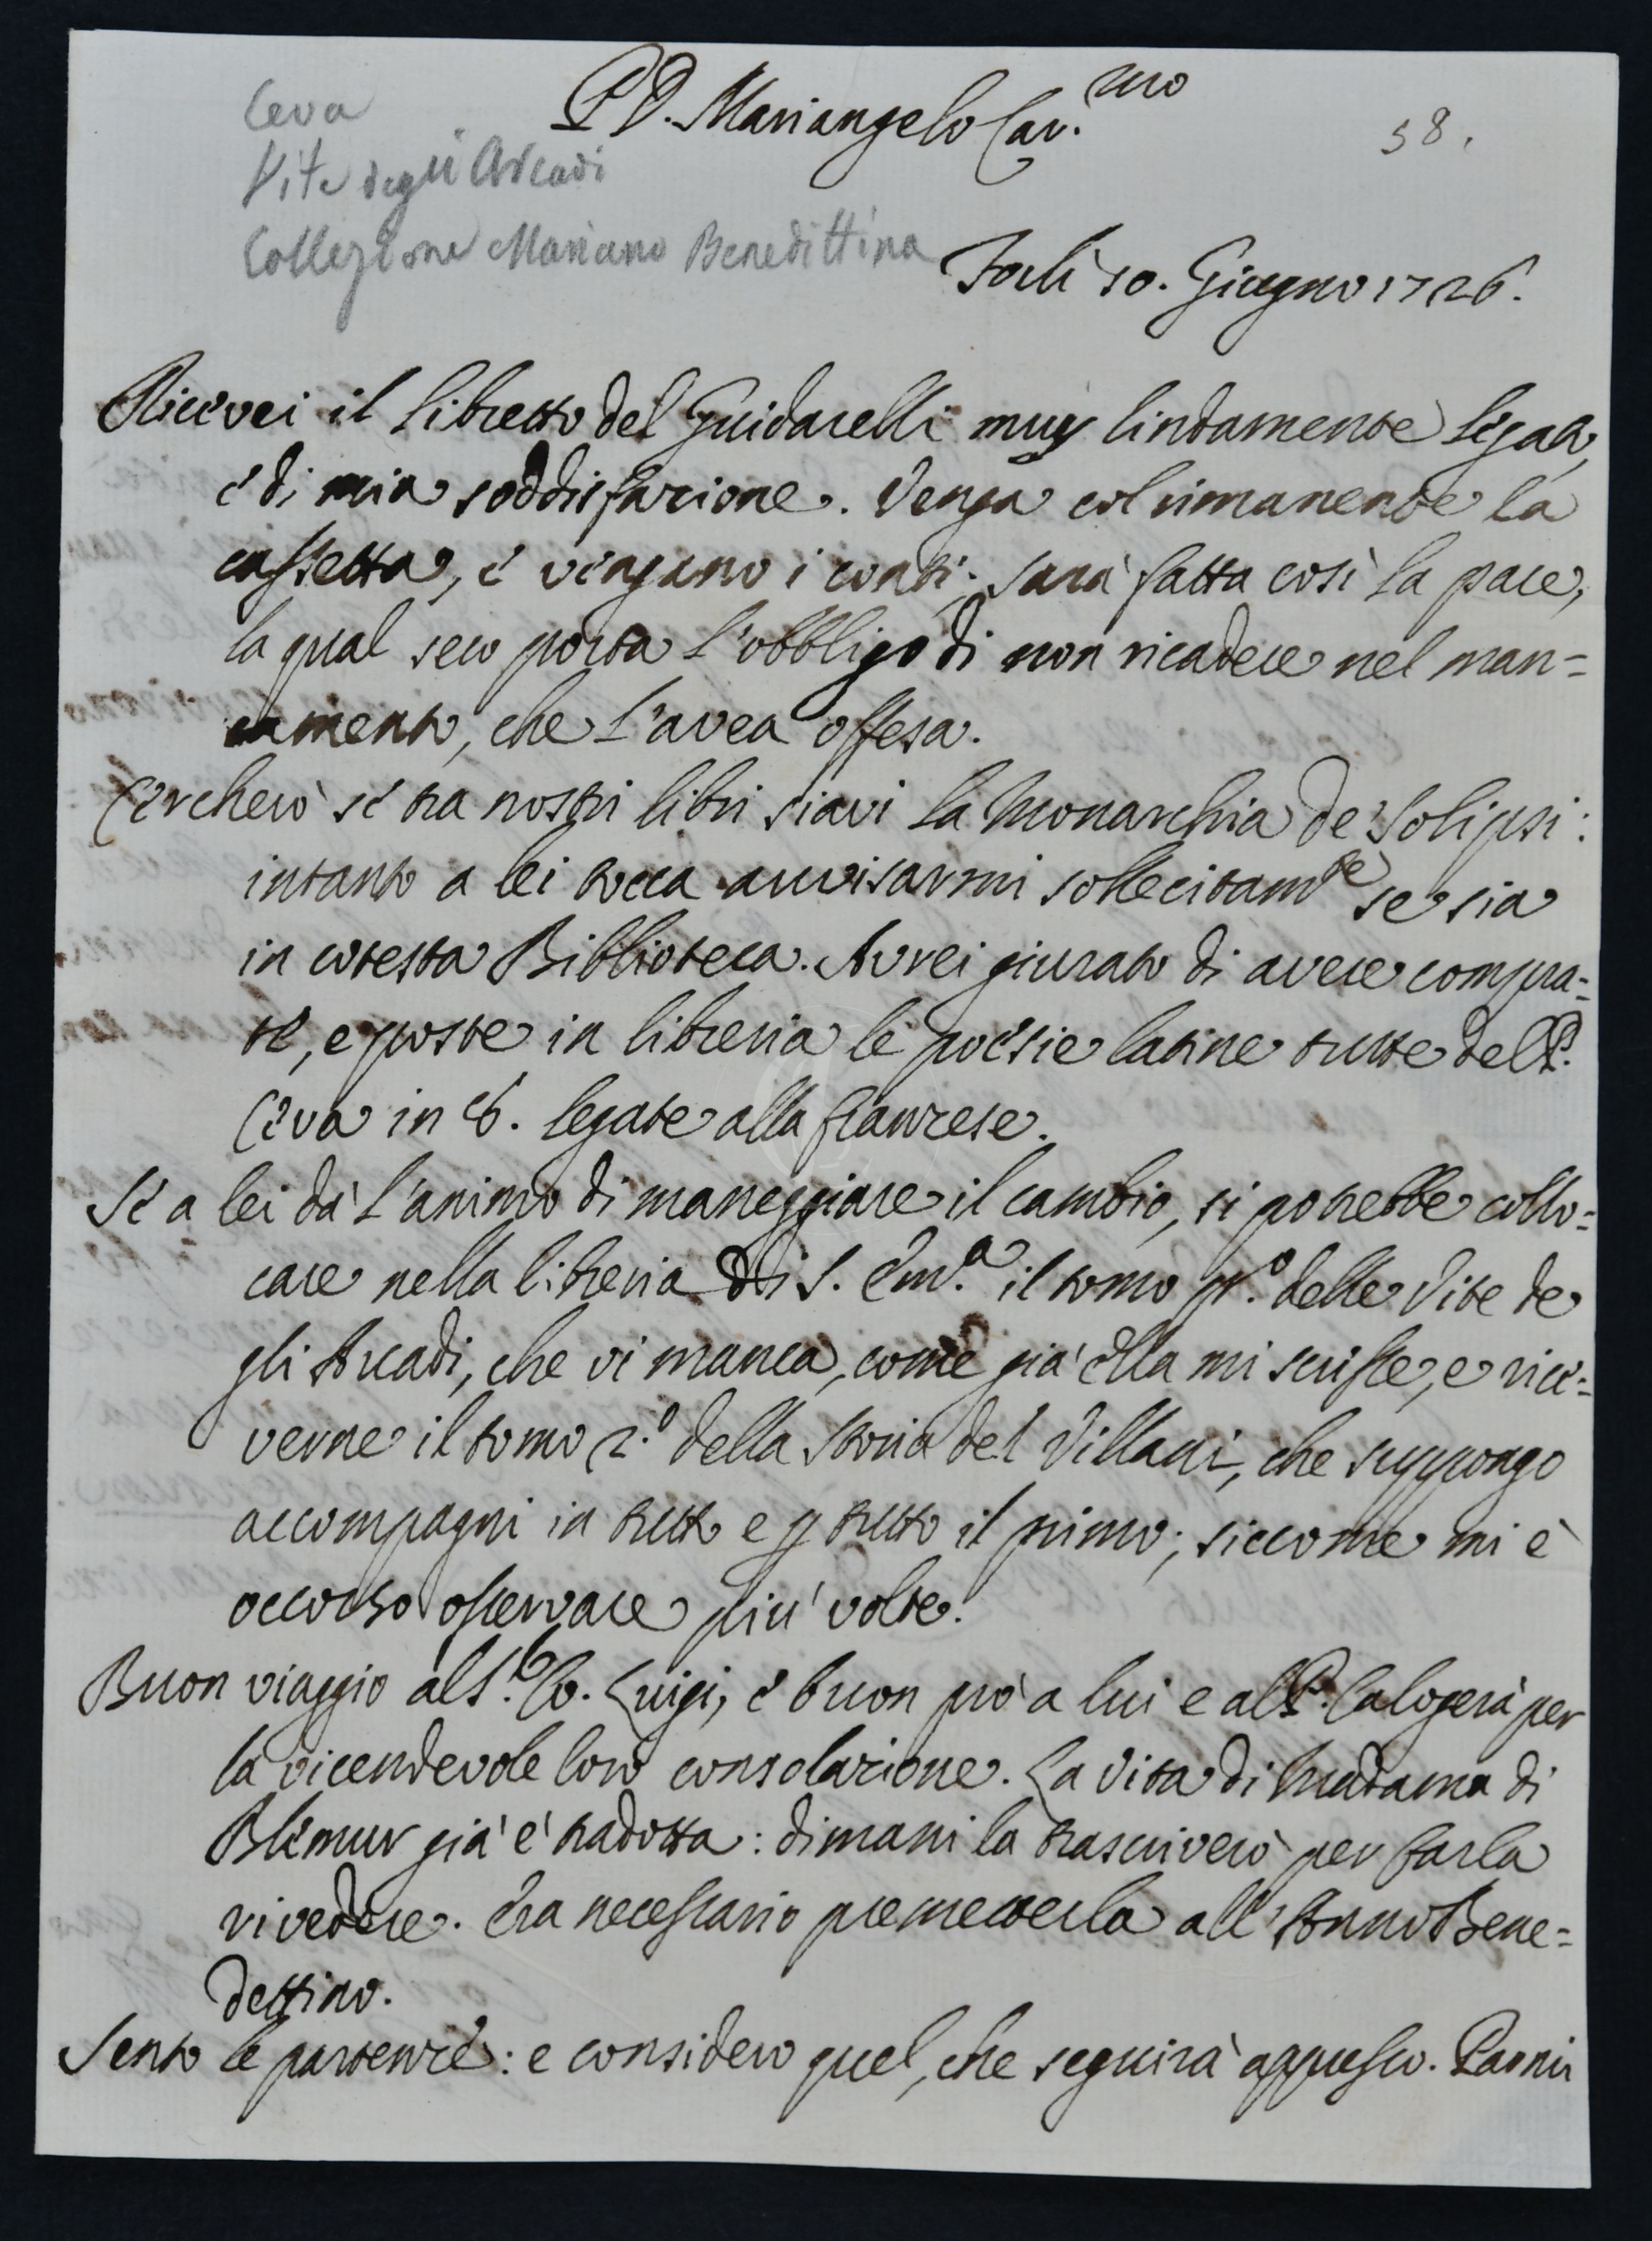 Ceva
Vite degli Arcadi
Collezione Mariano Benedittina
P. D. Mariangelo Car.mo
58.
Forlì 10. Giugno 1726.
Ricevei il libretto del Guidarelli muy lindamente legato,
è di mia soddisfazione. Venga col rimanente la
cassetta, e vengano i conti: sarà fatta così la pace,
la qual seco porta l'obbligo di non ricadere nel man=
camento, che l'avea offesa.
Cercherò se tra nostri libri siavi la Monarchia de' Solipsi:
intanto a lei tocca avvisarmi sollecitam.te se sia
in cotesta Biblioteca. Avrei giurato di avere compra=
te, e poste in libreria le poesie latine tutte del P.
Ceva in 16. legate alla franzese.
Se a lei dà l'animo di maneggiare il cambio, si potrebbe collo=
care nella libreria di S. Em.a il tomo pr.o delle Vite de
gli Arcadi, che vi manca, come già ella mi scrisse, e rice=
verne il tomo 2.o della Storia del Villani, che suppongo
accompagni in tutto e p tutto il primo; siccome mi è
occorso osservare più volte.
Buon viaggio al S.r Co. Luigi, e buon prò a lui e al P. Calogerà per
la vicendevole loro consolazione. La vita di Madama di
Blemur già è tradotta: dimani la trascriverò per farla
rivedere. Era necessario premetterla all'Anno Bene=
dettino.
Sento le partenze: e considero quel, che seguirà appresso. Parmi